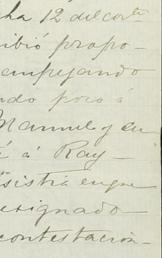 ha 12 del corte
cibió propo-
empezando
ndo poco á
Manuel y en
é á Ray-
sistia en que
esignado
contestación-